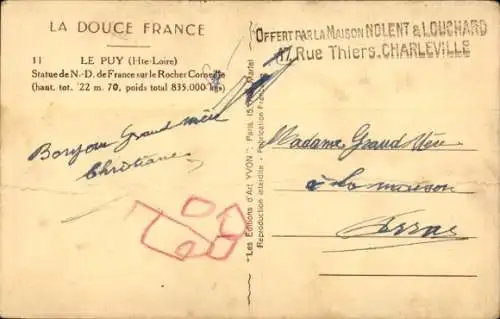 LA DOUCE FRANCE
11 LE PUY (Hte-Loire)
Statue de N.-D. de France sur le Rocher Corneille
(haut. tot. 22 m. 70, poids total 835.000 kgs)
Bonjour Grand mère
Christiane
"Les Editions d'Art YVON", Paris, 15, Rue Martel
Reproduction interdite - Fabrication Française
OFFERT PAR LA MAISON NOLENT & LOUCHARD
17 Rue Thiers. CHARLEVILLE
Madame Grand Mère
à la maison